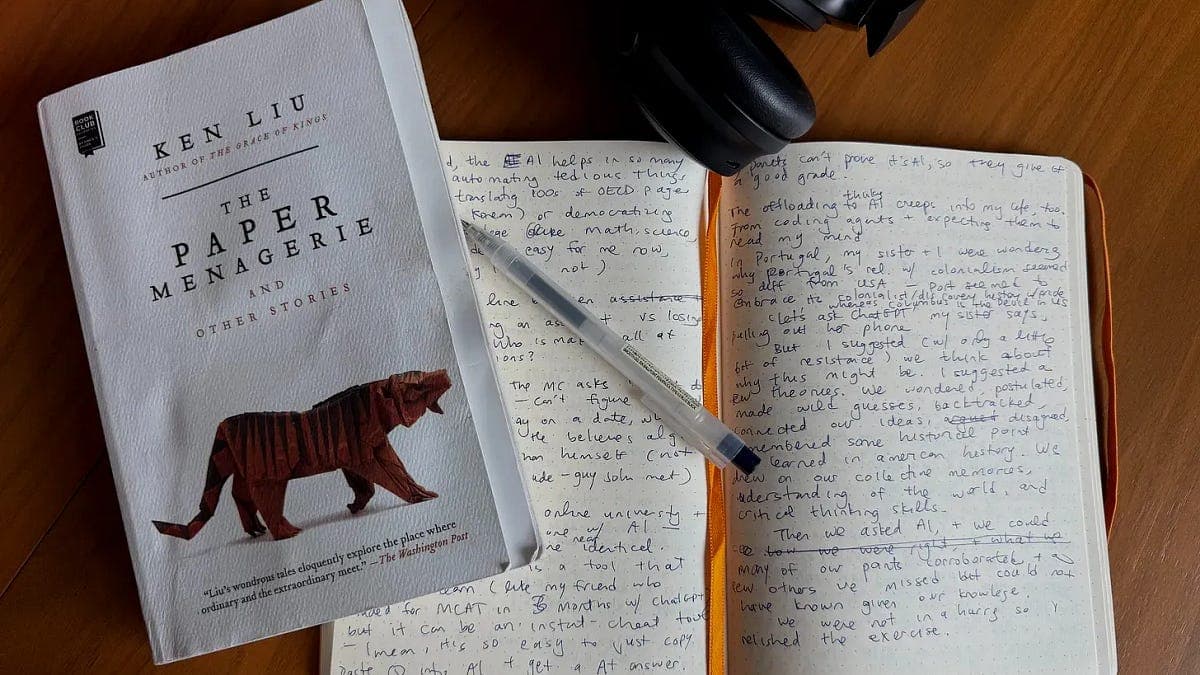 BOOK CLUB
KEN LIU
AUTHOR OF THE GRACE OF KINGS
THE
PAPER
MENAGERIE
AND
OTHER STORIES
"Liu's wondrous tales eloquently explore the place where
ordinary and the extraordinary meet." —The Washington Post
d, the AI helps in so many
automating tedious things
translatig 100s of OECD page
Korean) or democratizing
lege (like math, science,
easy for me now,
not)
line en assistance
ng an ass t vs losing
who is ma all at
ions?
The MC asks
- can't figure
ay on a date, w
He believes alg
han himself (not
ude-guy John met)
online university +
one w/ AI
near
ne identical.
s a tool that
earn (like my friend who
for MCAT in 3 months w/ ChatGPT
but it can be an instant-cheat tool
- I mean, it's so easy to just copy
paste Q into AI + get a A+ answer.
parents can't prove it's AI, so they give it
a good grade.
thinkg
The offloading to AI creeps into my life, too.
From coding agents + expecting them to
read my mind
In Portugal, my sister + I were wonderg
why Portugal's rel. w/ colonialism seemed
so diff from USA - Port seemed to
embrace its colonialist/discovery history w/ pride,
whereas Columbus is the devil in US
"Let's ask ChatGPT," my sister says,
pulling out her phone
But I suggested (w/ only a little
bit of resistance) we think about
why this might be. I suggested a
few theories. We wondered, postulated,
made wild guesses, backtracked,
connected our ideas, disagreed,
remembered some historical point
learned in american history. We
drew on our collective memories,
understanding of the world, and
critical thinking skills.
Then we asked AI, + we could
see how we were right + what we
many of our points corroborated + a
few others we missed but could not
have known given our knowlege.
We were not in a hurry so I
relished the exercise.